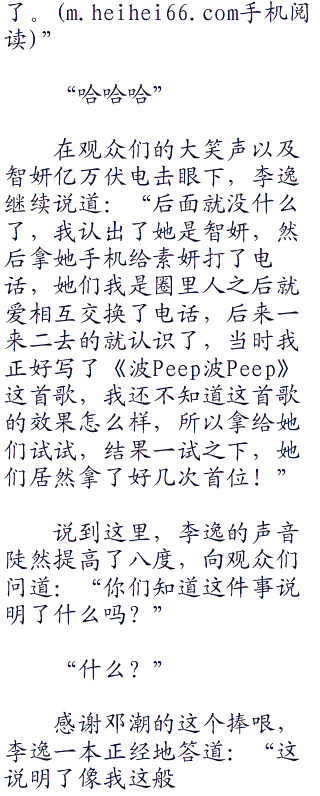 了。(m.heihei66.com手机阅
读)”
“哈哈哈”
在观众们的大笑声以及
智妍亿万伏电击眼下，李逸
继续说道：“后面就没什么
了，我认出了她是智妍，然
后拿她手机给素妍打了电
话，她们我是圈里人之后就
爱相互交换了电话，后来一
来二去的就认识了，当时我
正好写了《波Peep波Peep》
这首歌，我还不知道这首歌
的效果怎么样，所以拿给她
们试试，结果一试之下，她
们居然拿了好几次首位！”
说到这里，李逸的声音
陡然提高了八度，向观众们
问道：“你们知道这件事说
明了什么吗？”
“什么？”
感谢邓潮的这个捧哏，
李逸一本正经地答道：“这
说明了像我这般